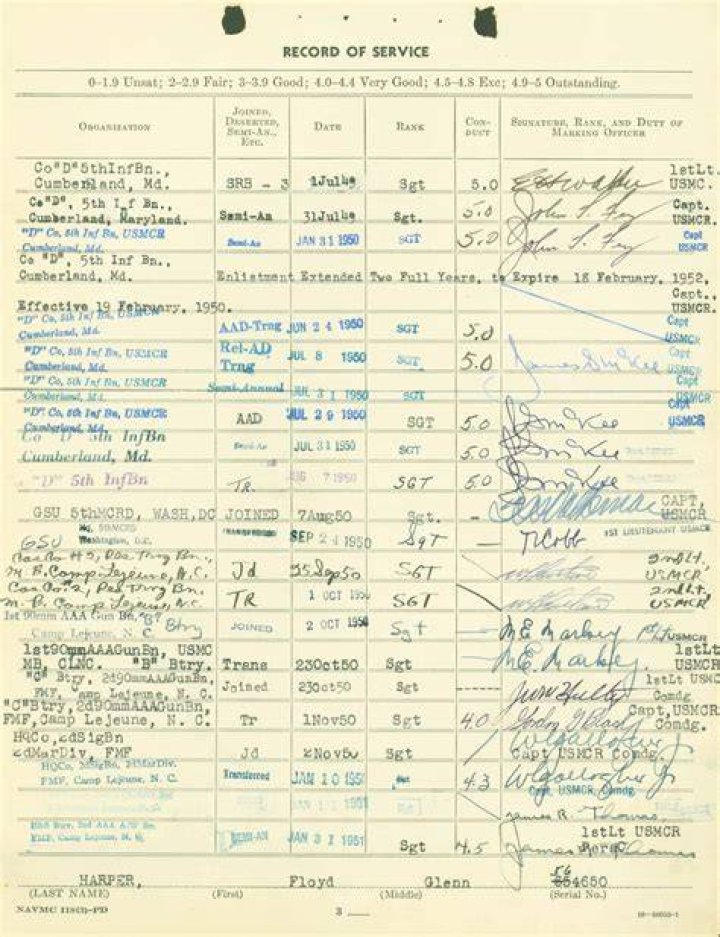 RECORD OF SERVICE
0–1.9 Unsat; 2–2.9 Fair; 3–3.9 Good; 4.0–4.4 Very Good; 4.5–4.8 Exc; 4.9–5 Outstanding.
ORGANIZATION JOINED, DESERTED, SEMI-AN., ETC. DATE RANK CON-DUCT SIGNATURE, RANK, AND DUTY OF MARKING OFFICER
Co "D" 5thInfBn., 1stLt.
Cumberland, Md. SRB - 3 1Jul49 Sgt 5.0 USMC.
Co "D", 5th Inf Bn., Capt.
Cumberland, Maryland. Semi-An 31Jul49 Sgt. 5.0 John S. Fey USMCR.
"D" Co, 5th Inf Bn, USMCR Capt
Cumberland, Md. Semi-An JAN 31 1950 SGT 5.0 John S. Fey USMCR
Co "D", 5th Inf Bn.,
Cumberland, Md. Enlistment Extended Two Full Years, to Expire 18 February, 1952,
Capt.,
Effective 19 February, 1950. USMCR.
"D" Co, 5th Inf Bn, USMCR Capt
Cumberland, Md. AAD-Trng JUN 24 1950 SGT 5.0 USMCR
"D" Co, 5th Inf Bn, USMCR Rel-AD Capt
Cumberland, Md. Trng JUL 8 1950 SGT 5.0 James S McKee USMCR
"D" Co, 5th Inf Bn, USMCR Capt
Cumberland, Md. Semi-Annual JUL 31 1950 SGT USMCR
"D" Co, 5th Inf Bn, USMCR Capt
Cumberland, Md. AAD JUL 29 1950 SGT 5.0 J S McKee USMCR
Co "D" 5th InfBn
Cumberland, Md. Semi-An JUL 31 1950 SGT 5.0 J S McKee
"D" 5th InfBn TR. AUG 7 1950 SGT 5.0 J S McKee
CAPT,
GSU 5thMCRD, WASH,DC JOINED 7Aug50 Sgt. - USMCR
Hq. 5THMCRD 1ST LIEUTENANT USMCR
GSU Washington, D.C. TRANSFERRED SEP 24 1950 Sgt - Cobb
Cas Co #2, Pers Trng Bn., 2nd Lt,
M. B. Camp Lejeune, N.C. Jd 25Sep50 SGT USMCR
Cas Co. 2, Pers Trng Bn. 2nd Lt,
M. B. Camp Lejeune, N.C. TR 1 OCT 1950 SGT USMCR
1st 90mm AAA Gun Bn, "B" Btry
Camp Lejeune, N. C. JOINED 2 OCT 1950 Sgt - M.E. Markey 1st Lt USMCR
1st90mmAAAGunBn, USMC 1stLt
MB, CLNC. "B" Btry. Trans 23Oct50 Sgt M.E. Markey. USMCR
"C" Btry, 2d90mmAAAGunBn, 1stLt USMC
FMF, Camp Lejeune, N. C. Joined 23Oct50 Sgt ----- Comdg
"C"Btry,2d90mmAAAGunBn, Capt,USMCR
FMF,Camp Lejeune, N. C. Tr 1Nov50 Sgt 4.0 Comdg.
HQCo,2dSigBn
2dMarDiv, FMF Jd 2Nov50 Sgt W Gallogher Jr Capt USMCR Comdg
HQCo, 2dSigBn, 2dMarDiv.
FMF, Camp Lejeune, N. C. Transferred JAN 10 1951 Sgt 4.3 W Gallogher Jr
Capt, USMCR, Comdg.
JAN 11 1951 James R. Thomas
H&S Btry, 2nd AAA AW Bn 1stLt USMCR
FMF, Camp Lejeune, N. C. SEMI-AN JAN 31 1951 Sgt 4.5 James R Thomas PersO
56
HARPER, Floyd Glenn 654650
(LAST NAME) (First) (Middle) (Serial No.)
NAVMC 118(3)-PD 3